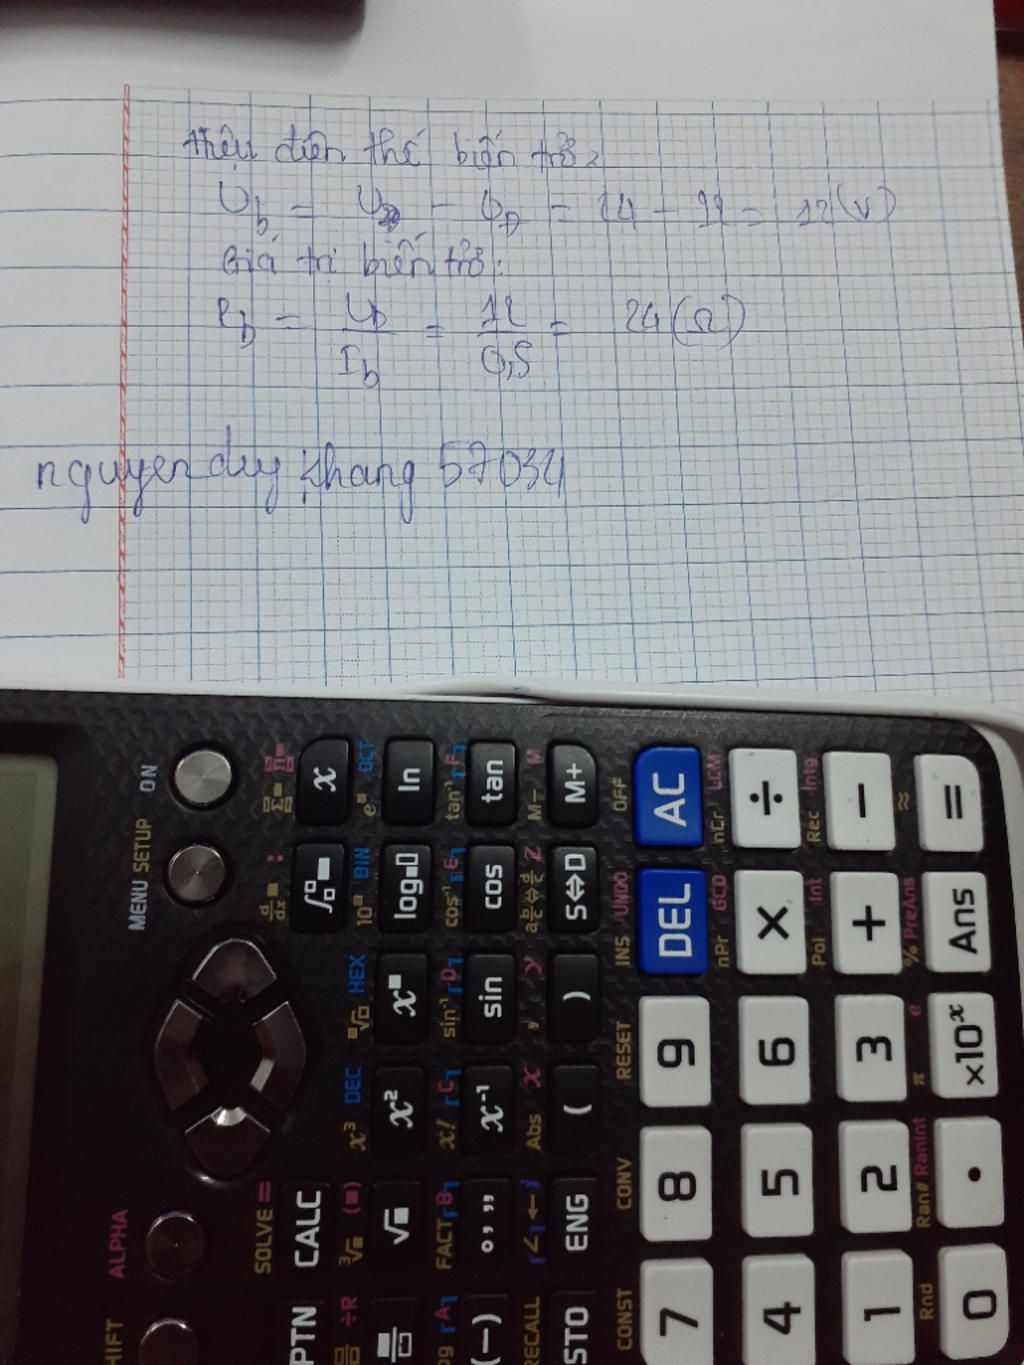 Hiệu điện thế biến trở:
U_b = U_ - U_Đ = 24 - 12 = 12 (V)
Giá trị biến trở:
R_b = U_b / I_b = 12 / 0,5 = 24 (Ω)
nguyen duy khang 57034
ON
MENU SETUP
ALPHA
SHIFT
x
OCT
ln
tan
M- M
M+
OFF
AC
nCr LCM
÷
Rec Intg
−
≈
=
d/dx
:
10■ BIN
log
cos⁻¹ E
cos
S⇔D
INS UNDO
DEL
nPr GCD
×
Pol Int
+
% PreAns
Ans
HEX
x■
sin⁻¹ D
sin
, y
)
RESET
9
6
3
π e
×10ˣ
x³ DEC
x²
x! C
x⁻¹
Abs x
(
CONV
8
5
2
Ran# RanInt
•
SOLVE =
CALC
√■
FACT B
° , ,,
∠ i
ENG
CONST
7
4
1
Rnd
0
OPTN
÷R
A
(−)
RECALL
STO